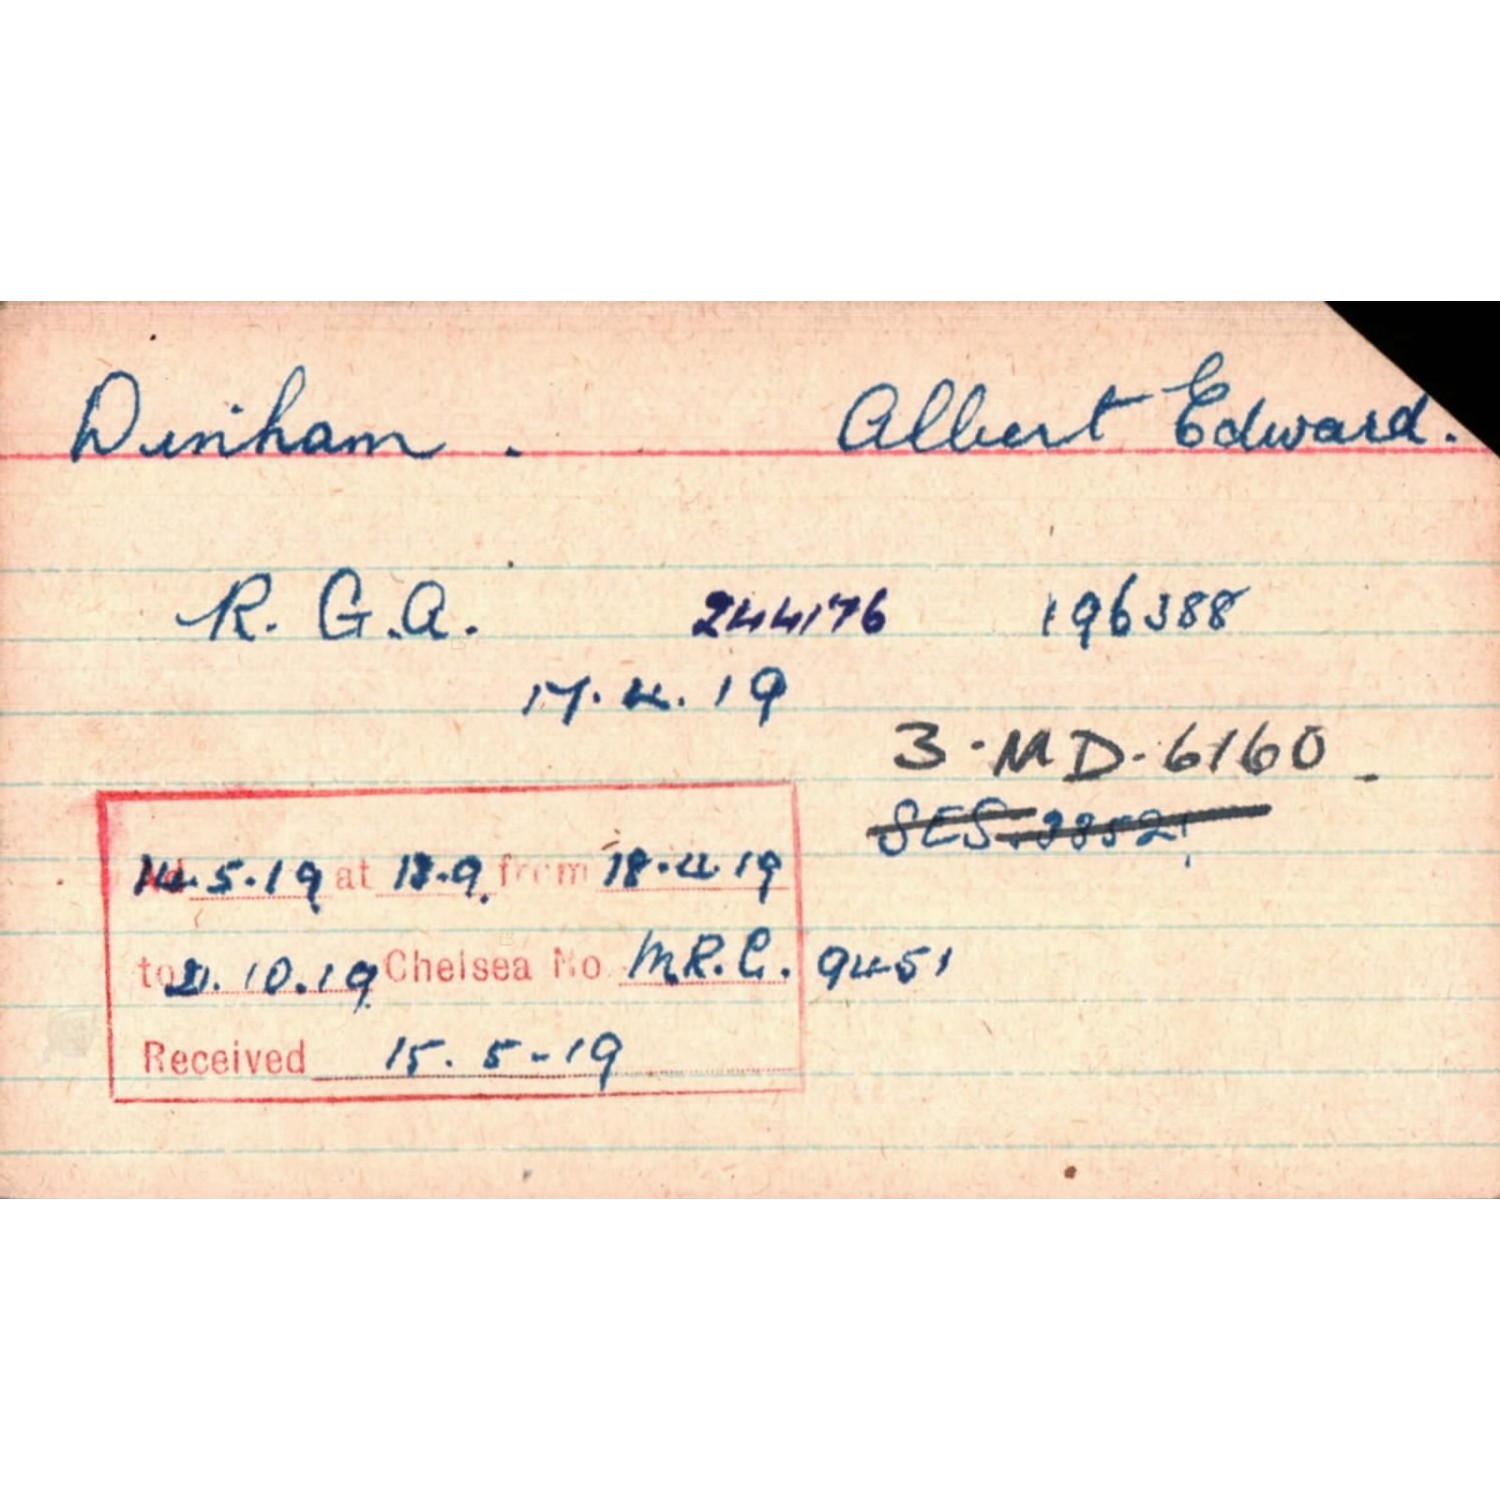 Dinham. Albert Edward.
R.G.A. 244176 196388
17.4.19
3.MD.6160
SES.28521
14.5.19 at 13.9. from 18.4.19
to 21.10.19 Chelsea No M.R.C. 9451
Received 15.5-19